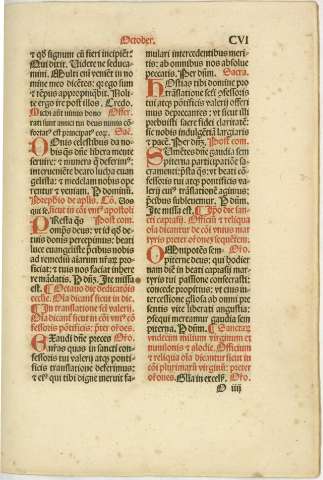 October.
CVI
& qd signum cũ fieri incipiẽt:
Qui dixit. Videte ne seduca-
mini. Multi eni venient in no
mine meo dicẽtes: qr ego sum
& tẽpus appropinqbit. Noli-
te ergo ire post illos. Credo.
Michi aut nimis dono Offer.
rati sunt amici tui deus nimis cõ
fortat' est principat' eoꝝ. Sac.
Donis celestibus da no-
bis qs dñe libera mente
seruire: ut munera q̃ deferimus
interueniente beato lucha euan
gelista: & medelam nobis ope
rentur & veniam. P dominũ.
Prephatio de aplis. Cõ. Vos
qui se. sicut in cõi vni' apostoli
Presta qs Post com.
omnps deus: ut id qd de
tuis donis percepimus: beati
luce euangeliste precibus nobis
ad remedium aiarum nrar pro
ficiat: & tuis nos faciat inhere
re mãdatis. P dñz. Ite missa
est. Octauo die dedicationis
ecclie. Oia dicant sicut in die.
In translatione sci valerii
oia dicant sicut in cõi vni' cõ
fessoris põtificis: preter orões.
Exaudi dñe preces Oro.
nras quas in sancti con-
fessoris tui valerii atqz ponti-
ficis translatione deferimus:
& ei qui tibi digne meruit fa-
mulari intercedentibus meri-
tis: ab omnibus nos absolue
peccatis. Per dñm. Sacra.
Hostias tibi domine pro
trãslatione sci cõfessoris
tui atqz pontificis valerii offeri
mus deprecantes: vt sicut illi
prebuisti sacre fidei claritatẽ:
sic nobis indulgentiã largiaris
& pacẽ. Per dñm. Post com.
Sumentes dñe gaudia sem
piterna participatiõe sa-
cramenti: psta qs: vt beati cõ-
fessoris tui atqz pontificis va-
lerii cui' trãslationẽ agimus:
precibus subleuemur. P dñm.
Ite missa est. Ipo die san-
cti caprasii. Officiũ & reliqua
oia dicantur vt in cõi vnius mar
tyris preter orones sequentes:
Omnipotens sem- Oro.
piterne deus: qui hodier
nam diẽ in beati caprasii mar-
tyris tui passione consecrasti:
concede propitius: vt eius in-
tercessione gliosa ab omni pre
sentis vite liberati angustia:
psequi mereamur gaudia sem
piterna. P dñm. Sanctarz
vndecim milium virginum et
nunilonis & alodie. Officium
& reliqua oia dicantur sicut in
cõi plurimarũ virginũ: preter
orones. Glia in excels. Oro.
O iiij